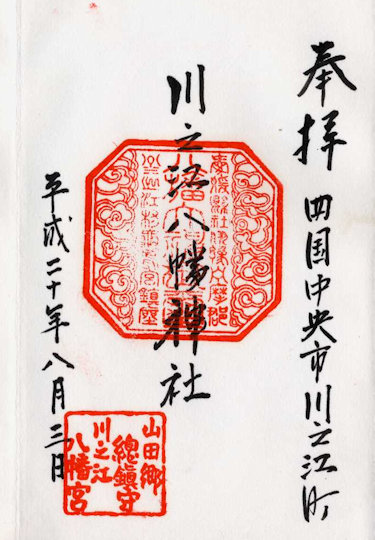 奉拝 四国中央市川之江町
川之江八幡神社
平成二十年八月三日
山田郷
總鎮守
川之江
八幡宮